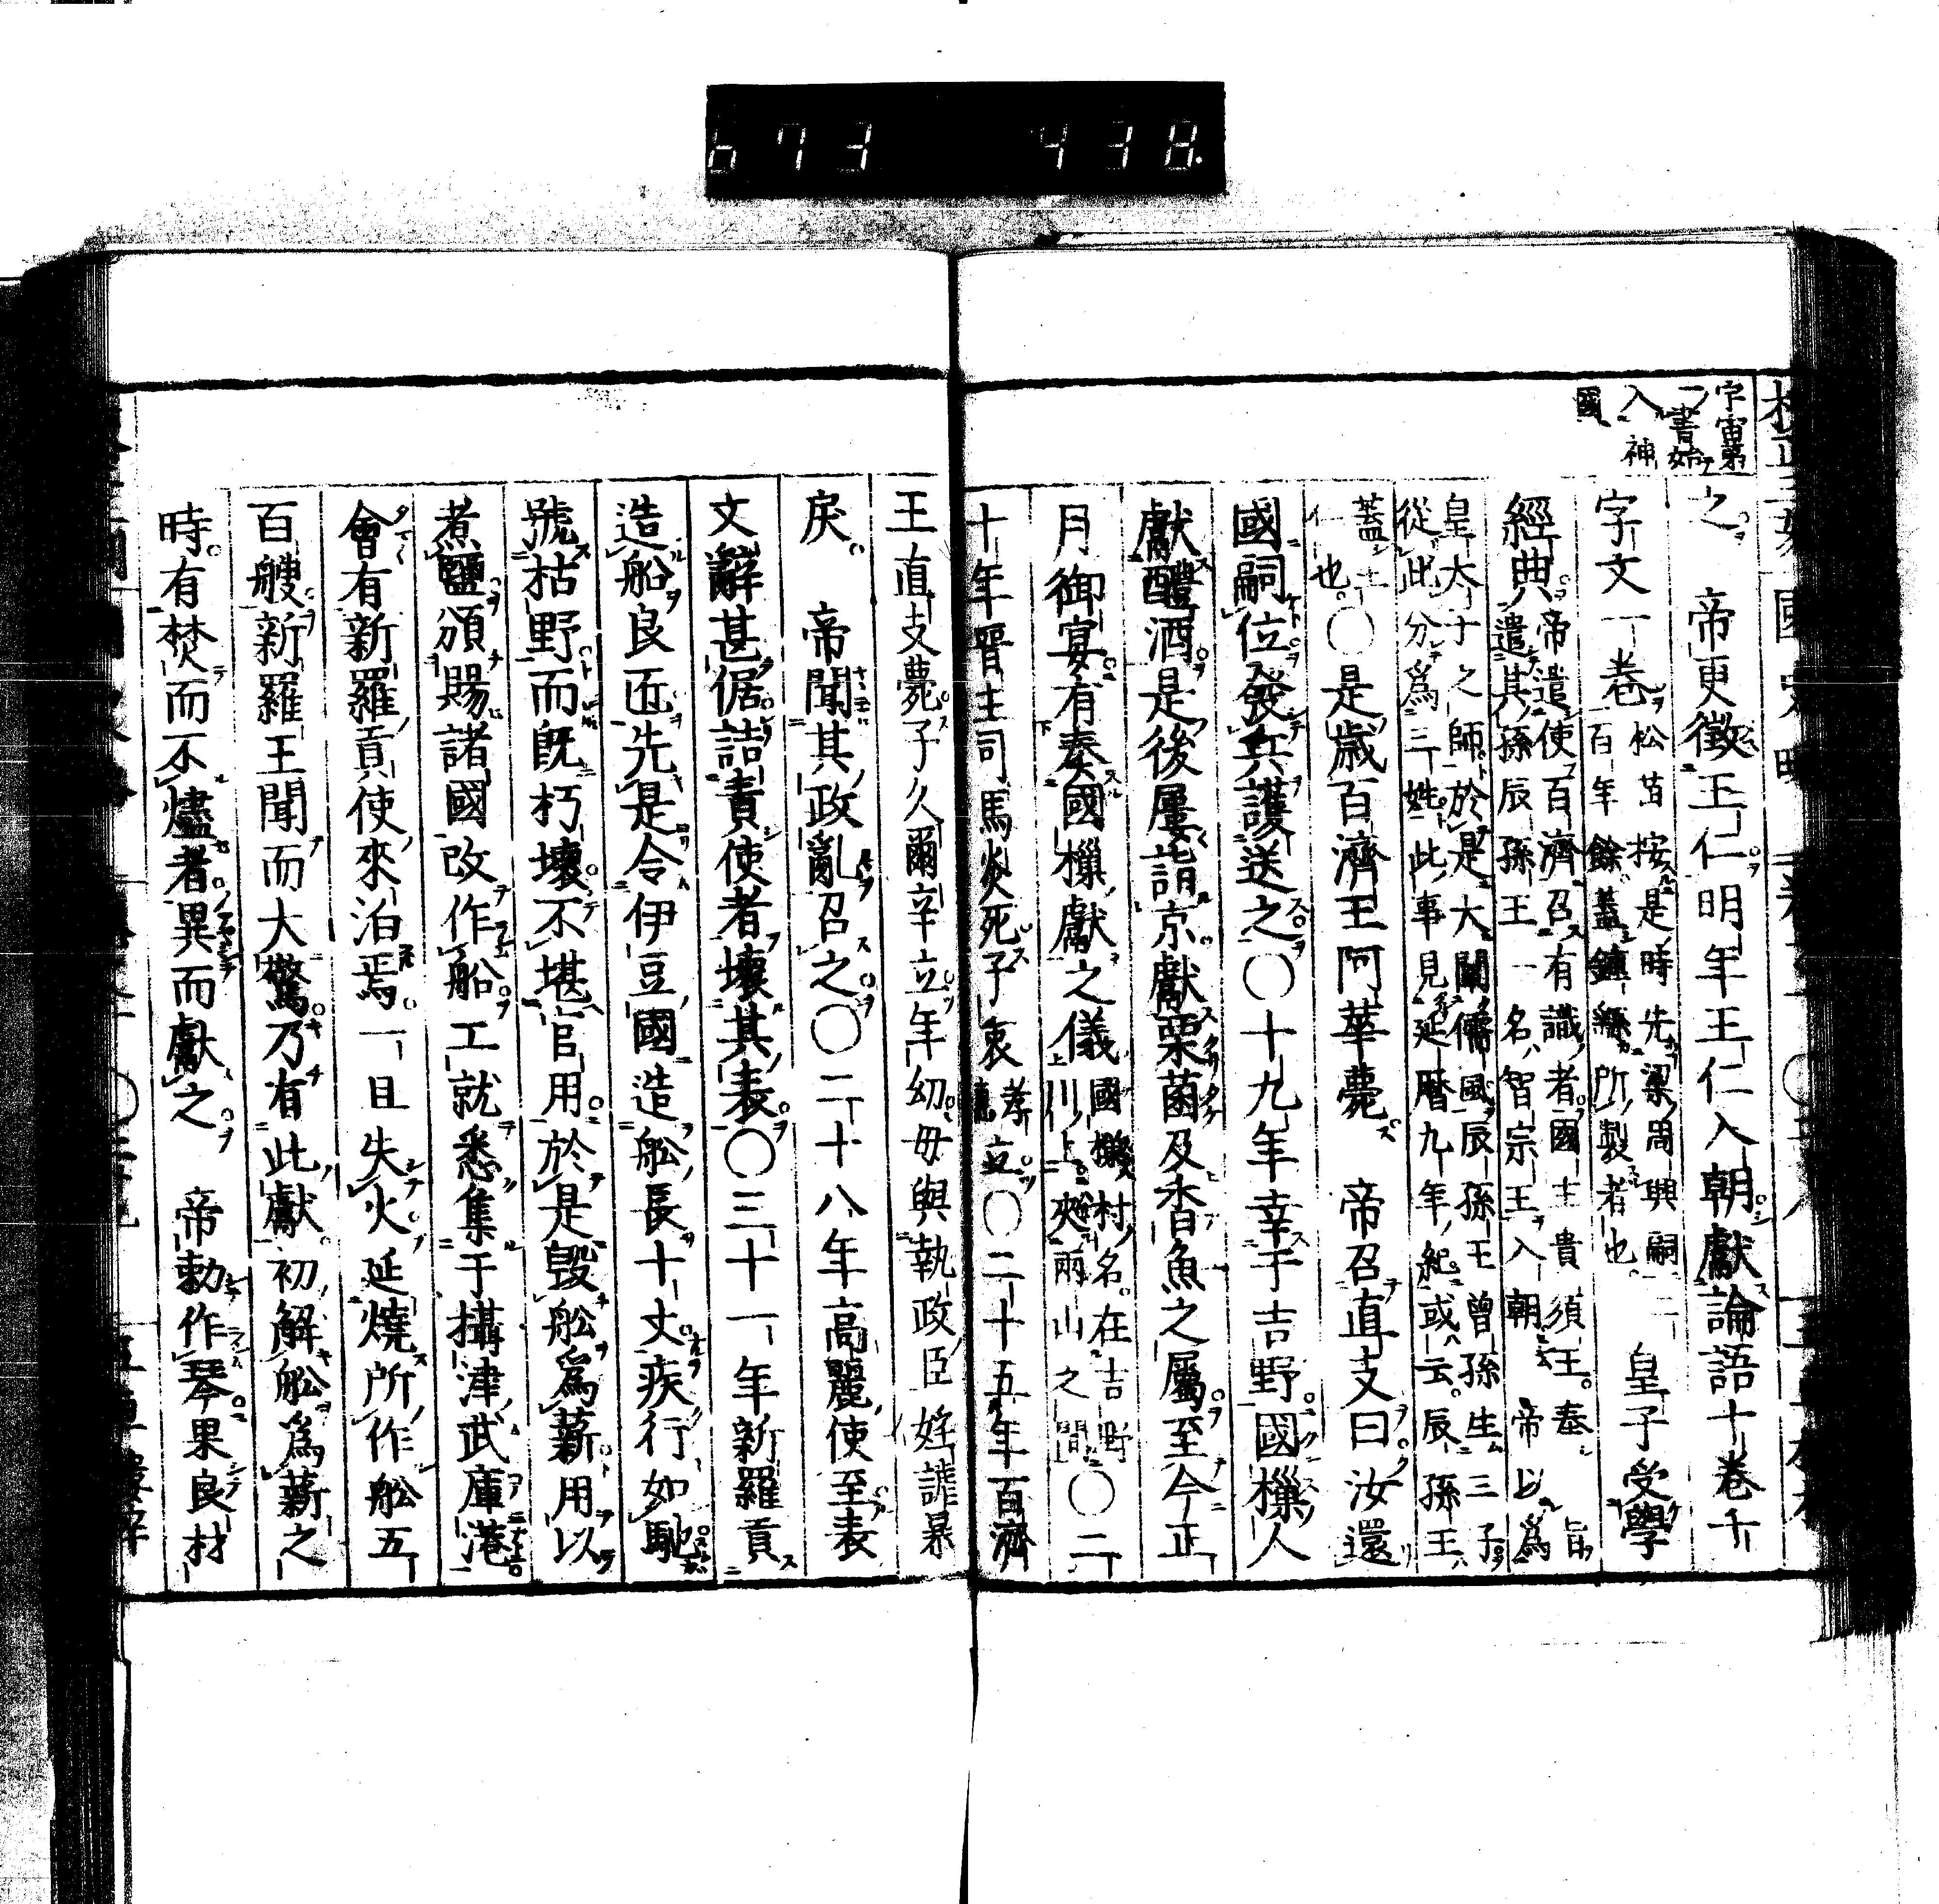 673 438
字甯第
一書始
入 神
國
之 帝更徵王仁明年王仁入朝獻論語十卷千
字文一卷 松苗按是時先梁周興嗣二
百年餘蓋鎮繇所製者也 皇子受學
經典 帝遣使百濟召有識者國主貴須王奉旨
遣其孫辰孫王一名智宗王入朝 帝以爲
皇太子之師於是大闡儒風辰孫王曾孫生三子
從此分爲三姓此事見延曆九年紀或云辰孫王
蓋王
仁也〇是歲百濟王阿華薨 帝召直支曰汝還
國嗣位發兵護送之〇十九年幸于吉野國樔人
獻醴酒是後屢詣京獻栗菌及香魚之屬至今正
月御宴有奏國樔獻之儀 國樔村名在吉野
川上夾兩山之間〇二
十年晉主司馬炎死子衷 孝惠 立〇二十五年百濟
王直支薨子久爾辛立年幼毋與執政臣婬謔暴
戾 帝聞其政亂召之〇二十八年高麗使至表
文辭甚倨詰責使者壞其表〇三十一年新羅貢
造船良匠先是令伊豆國造舩長十丈疾行如馳
號枯野而既朽壞不堪官用於是毀舩爲薪用以
煮鹽頒賜諸國改作船工就悉集于攝津武庫港
會有新羅貢使來泊焉一旦失火延燒所作舩五
百艘新羅王聞而大驚乃有此獻初解舩爲薪之
時有焚而不燼者異而獻之 帝勅作琴果良材